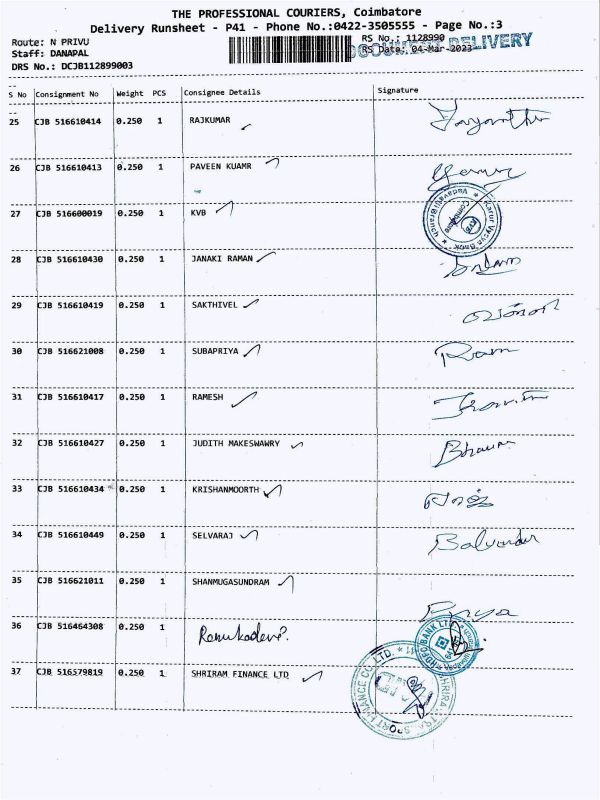 THE PROFESSIONAL COURIERS, Coimbatore
Delivery Runsheet - P41 - Phone No.:0422-3505555 - Page No.:3
Route: N PRIVU RS No.: 1128990
Staff: DANAPAL RS Date: 04-Mar-2023
DRS No.: DCJB112899003
DOCUMENT DELIVERY
S No Consignment No Weight PCS Consignee Details Signature
25 CJB 516610414 0.250 1 RAJKUMAR
26 CJB 516610413 0.250 1 PAVEEN KUAMR
27 CJB 516600019 0.250 1 KVB
28 CJB 516610430 0.250 1 JANAKI RAMAN
29 CJB 516610419 0.250 1 SAKTHIVEL
30 CJB 516621008 0.250 1 SUBAPRIYA Ram
31 CJB 516610417 0.250 1 RAMESH
32 CJB 516610427 0.250 1 JUDITH MAKESWAWRY
33 CJB 516610434 0.250 1 KRISHANMOORTH
34 CJB 516610449 0.250 1 SELVARAJ
35 CJB 516621011 0.250 1 SHANMUGASUNDRAM Priya
36 CJB 516464308 0.250 1 Renukadevi
37 CJB 516579819 0.250 1 SHRIRAM FINANCE LTD